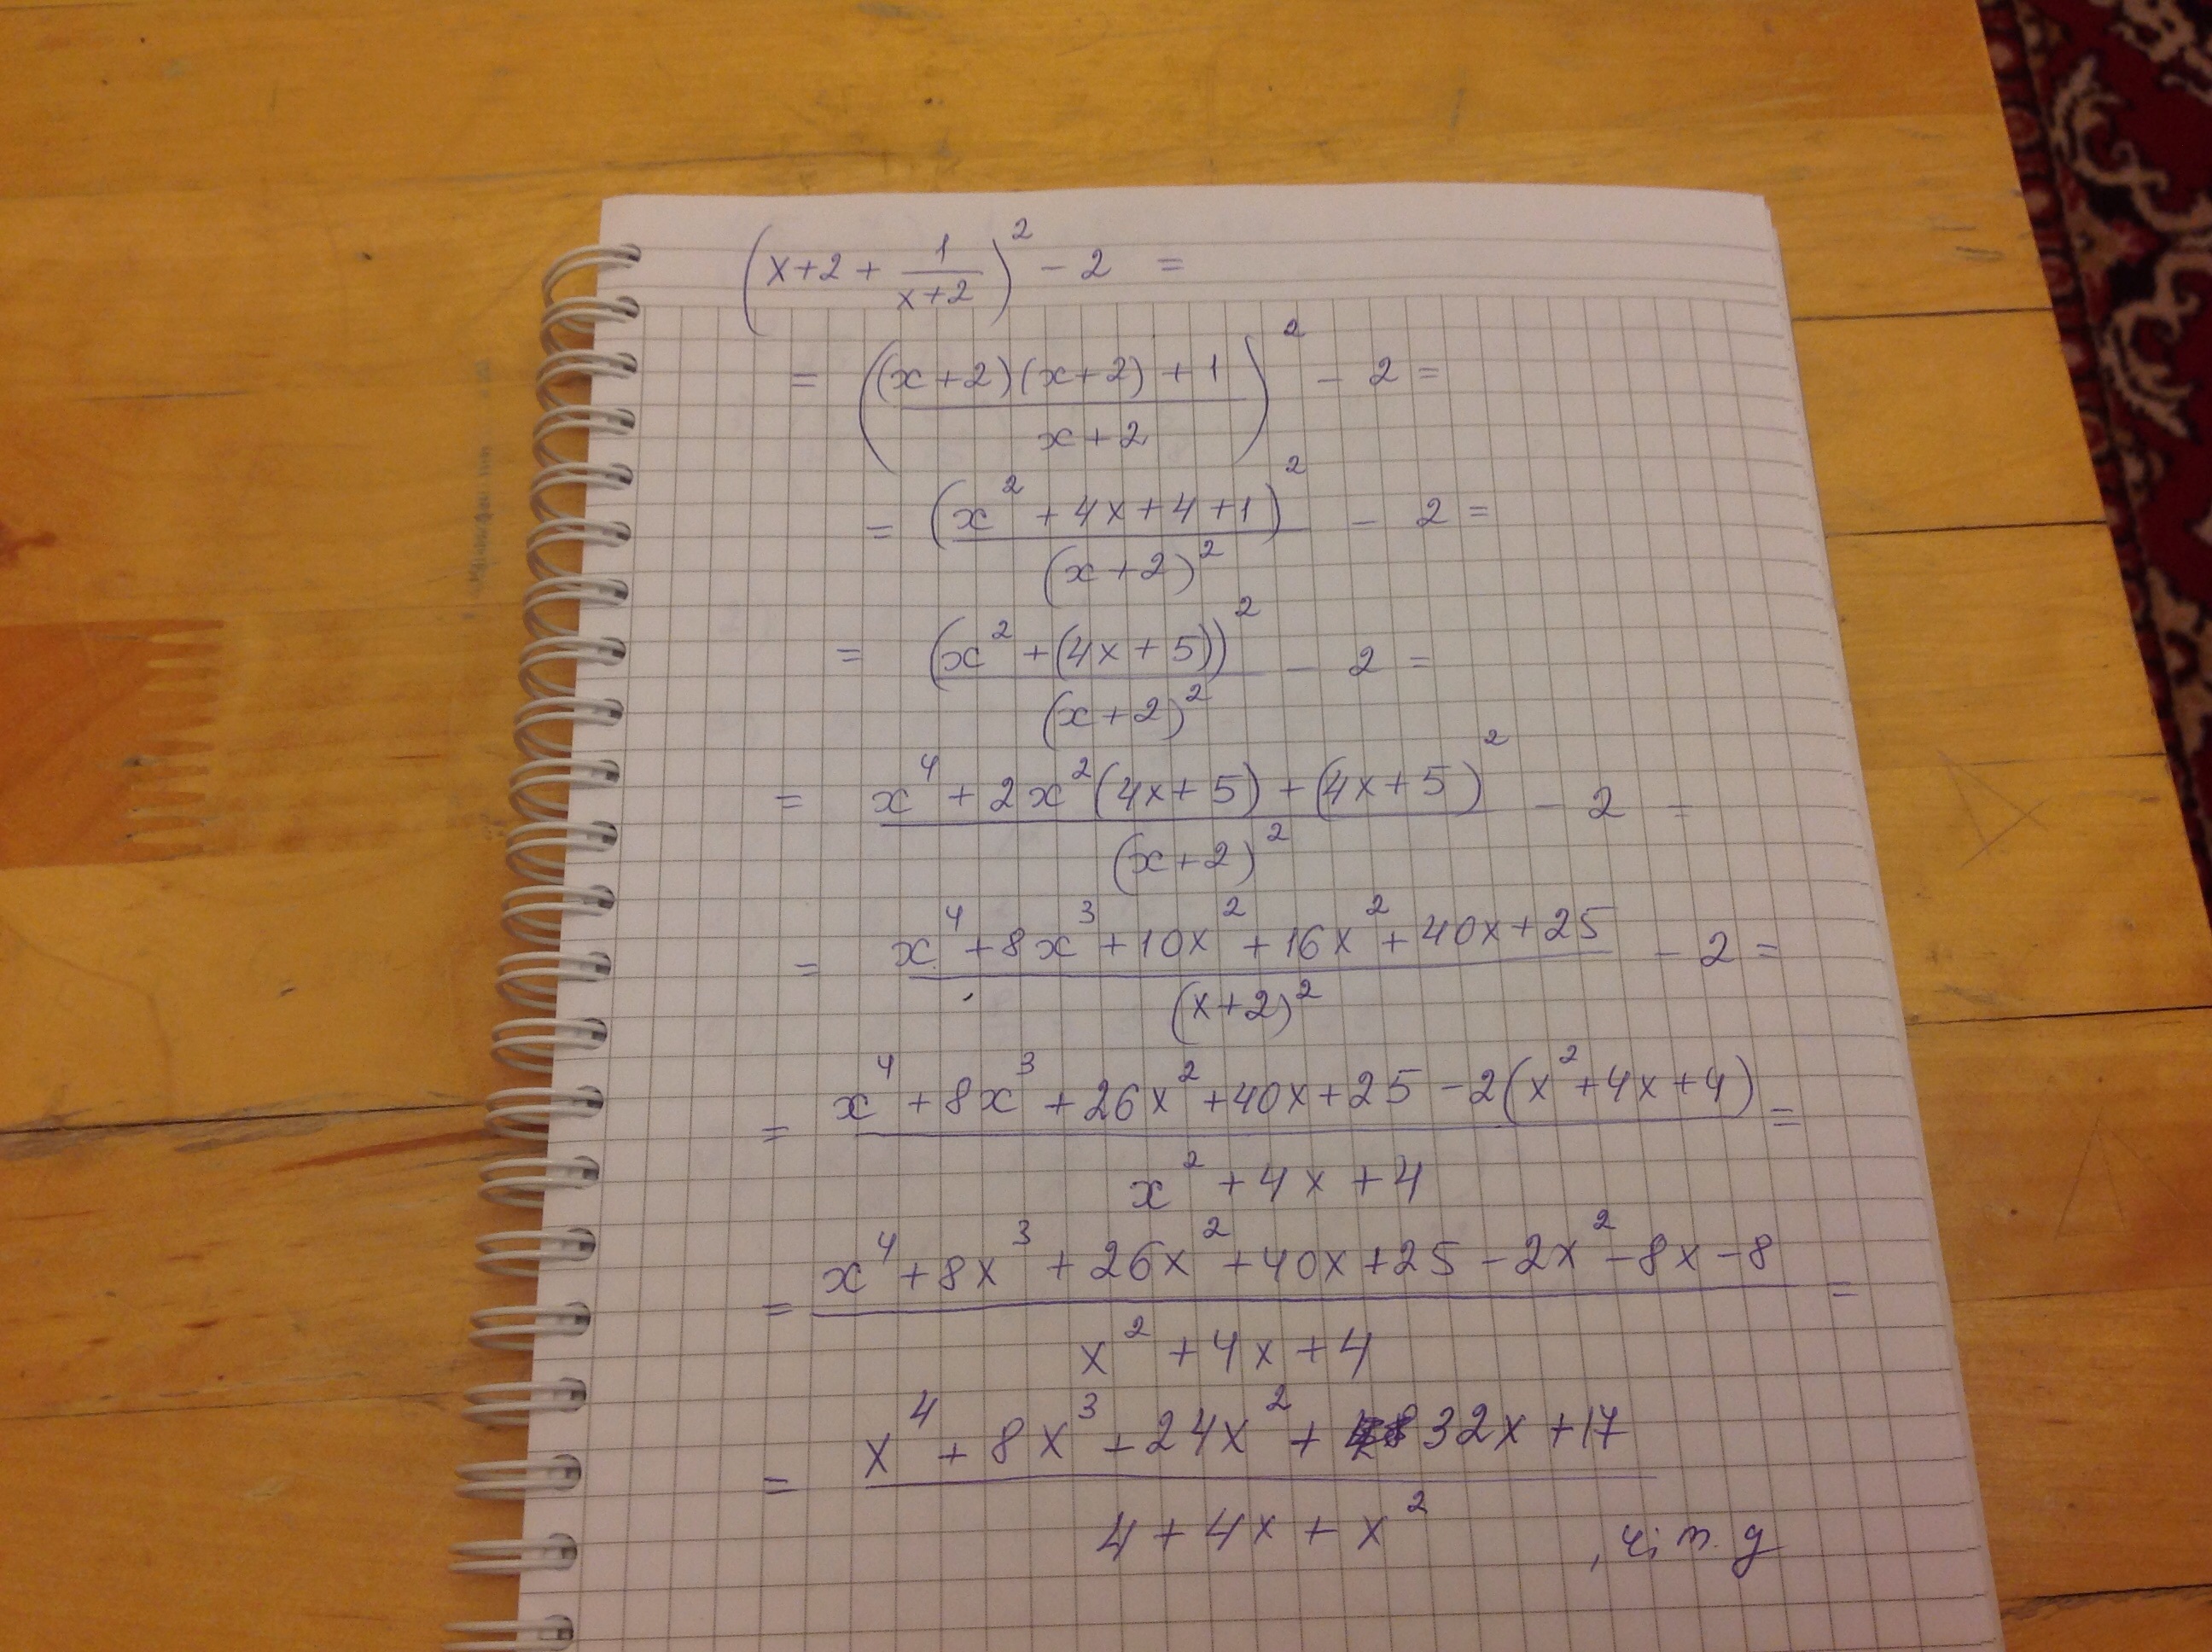 (x+2+1/(x+2))²-2 =
= (((x+2)(x+2)+1)/(x+2))² - 2 =
= (x²+4x+4+1)²/(x+2)² - 2 =
= (x²+(4x+5))²/(x+2)² - 2 =
= (x⁴+2x²(4x+5)+(4x+5)²)/(x+2)² - 2 =
= (x⁴+8x³+10x²+16x²+40x+25)/(x+2)² - 2 =
= (x⁴+8x³+26x²+40x+25-2(x²+4x+4))/(x²+4x+4) =
= (x⁴+8x³+26x²+40x+25-2x²-8x-8)/(x²+4x+4) =
= (x⁴+8x³+24x²+32x+17)/(4+4x+x²) , ч.т.д